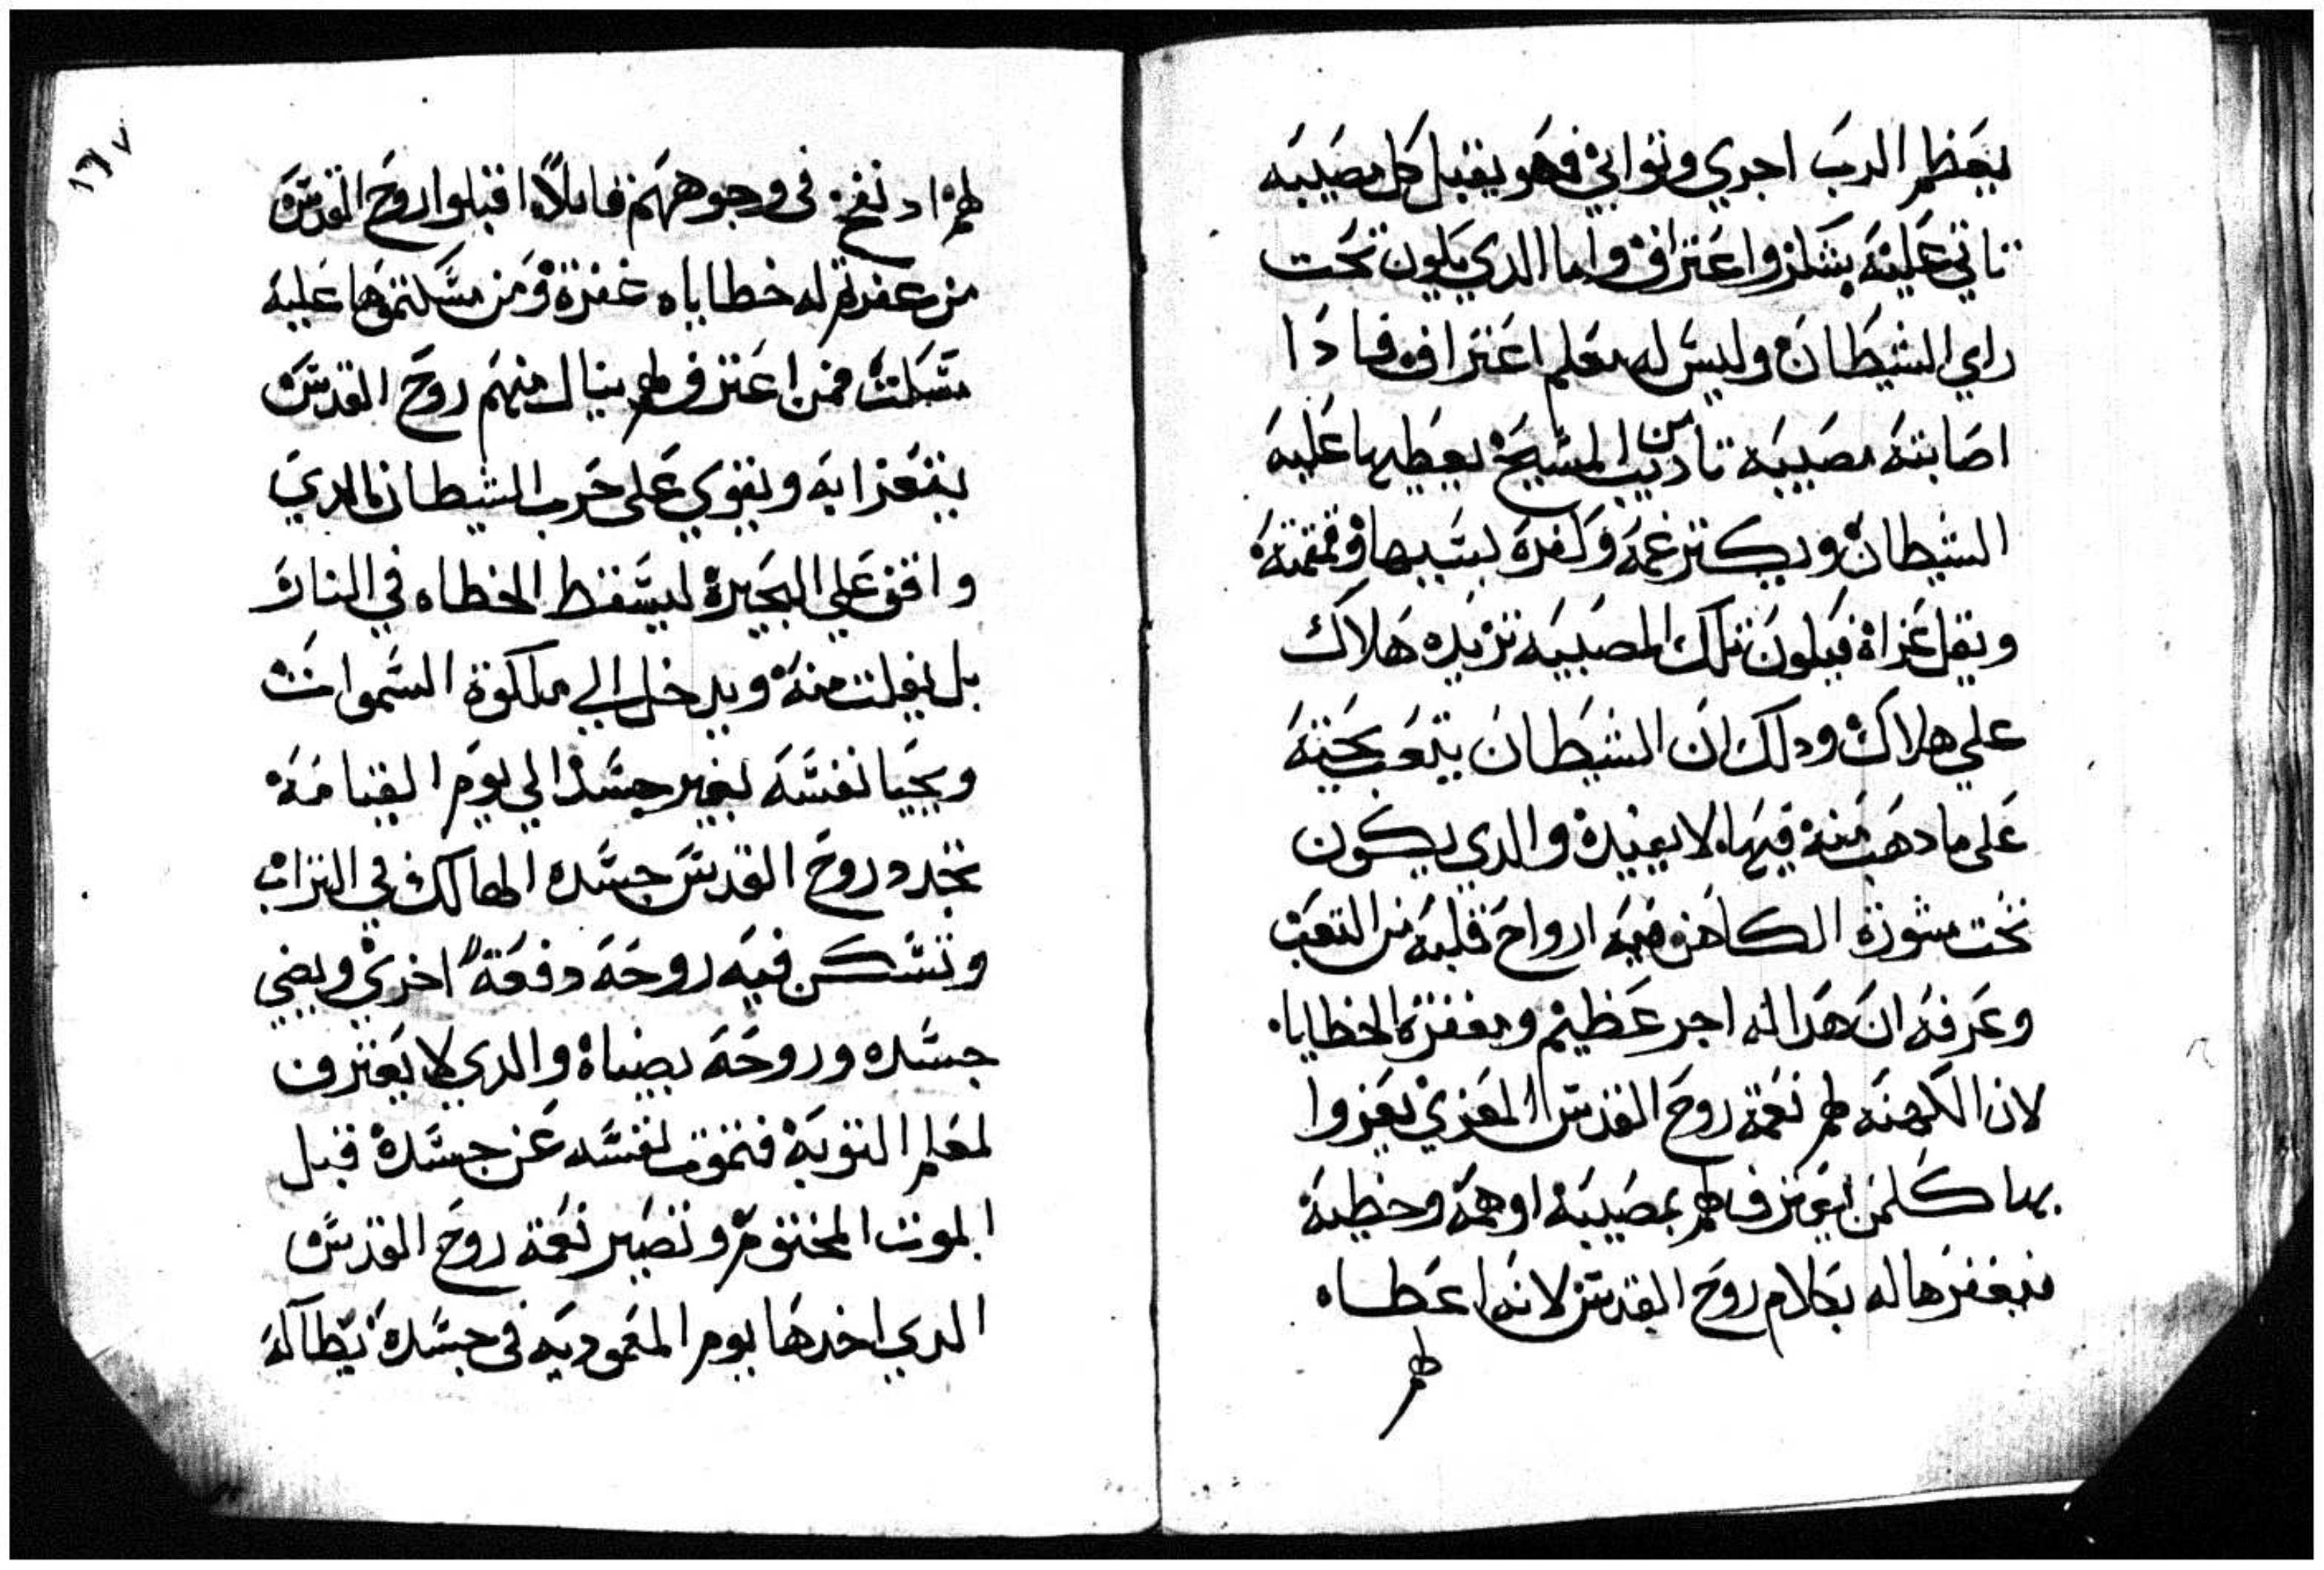 يعظم الرب اجري وثوابي فهو يقبل كل مصيبه
تاتي عليه بشكر واعتراف واما الدي يكون تحت
راي الشيطان وليس له معلم اعتراف فادا
اصابته مصيبه تاديب من المسيح يعظمها عليه
الشيطان ويكتر غمه وكفره بسببها وقمقمته
ويقل عزاه فيكون تلك المصيبه تزيده هلاك
علي هلاك ودلك ان الشيطان يتعب بحيته
على ما دهب منه فيما لا يفيده والدي يكون
تحت مشورة الكاهن فيه ارواح قلبه من التعب
وعرفه ان هدا له اجر عظيم ومغفرة الخطايا
لان الكهنه لهم نعمة روح القدس المعزي يعزوا
بها كلمن يعترف لهم بمصيبه او همه وخطيه
فيغفرها له بكلام روح القدس لانه اعطاه
لهم
١٦٧
لهم اد نفخ في وجوههم قايلاً اقبلوا روح القدس
من غفرتم له خطاياه غفرة ومن مسكتموها عليه
مسكت فمن اعترف لهم ينال منهم روح القدس
يتعزا به ويقوي على حرب الشيطان الدي
واقف علي البحيرة ليسقط الخطاه في النار
بل يفلت منه ويدخل الي ملكوة السموات
ويحيا نفسه بغير جسد الي يوم القيامه
تجدد روح القدس جسده الهالك في التراب
وتسكن فيه روحه دفعةً اخري ويضي
جسده وروحه بضياه والدي لا يعترف
لمعلم التوبة فتموت نفسه عن جسده قبل
الموت المختوم وتصير نعمة روح القدس
الدي اخدها يوم المعموديه في جسده بطاله